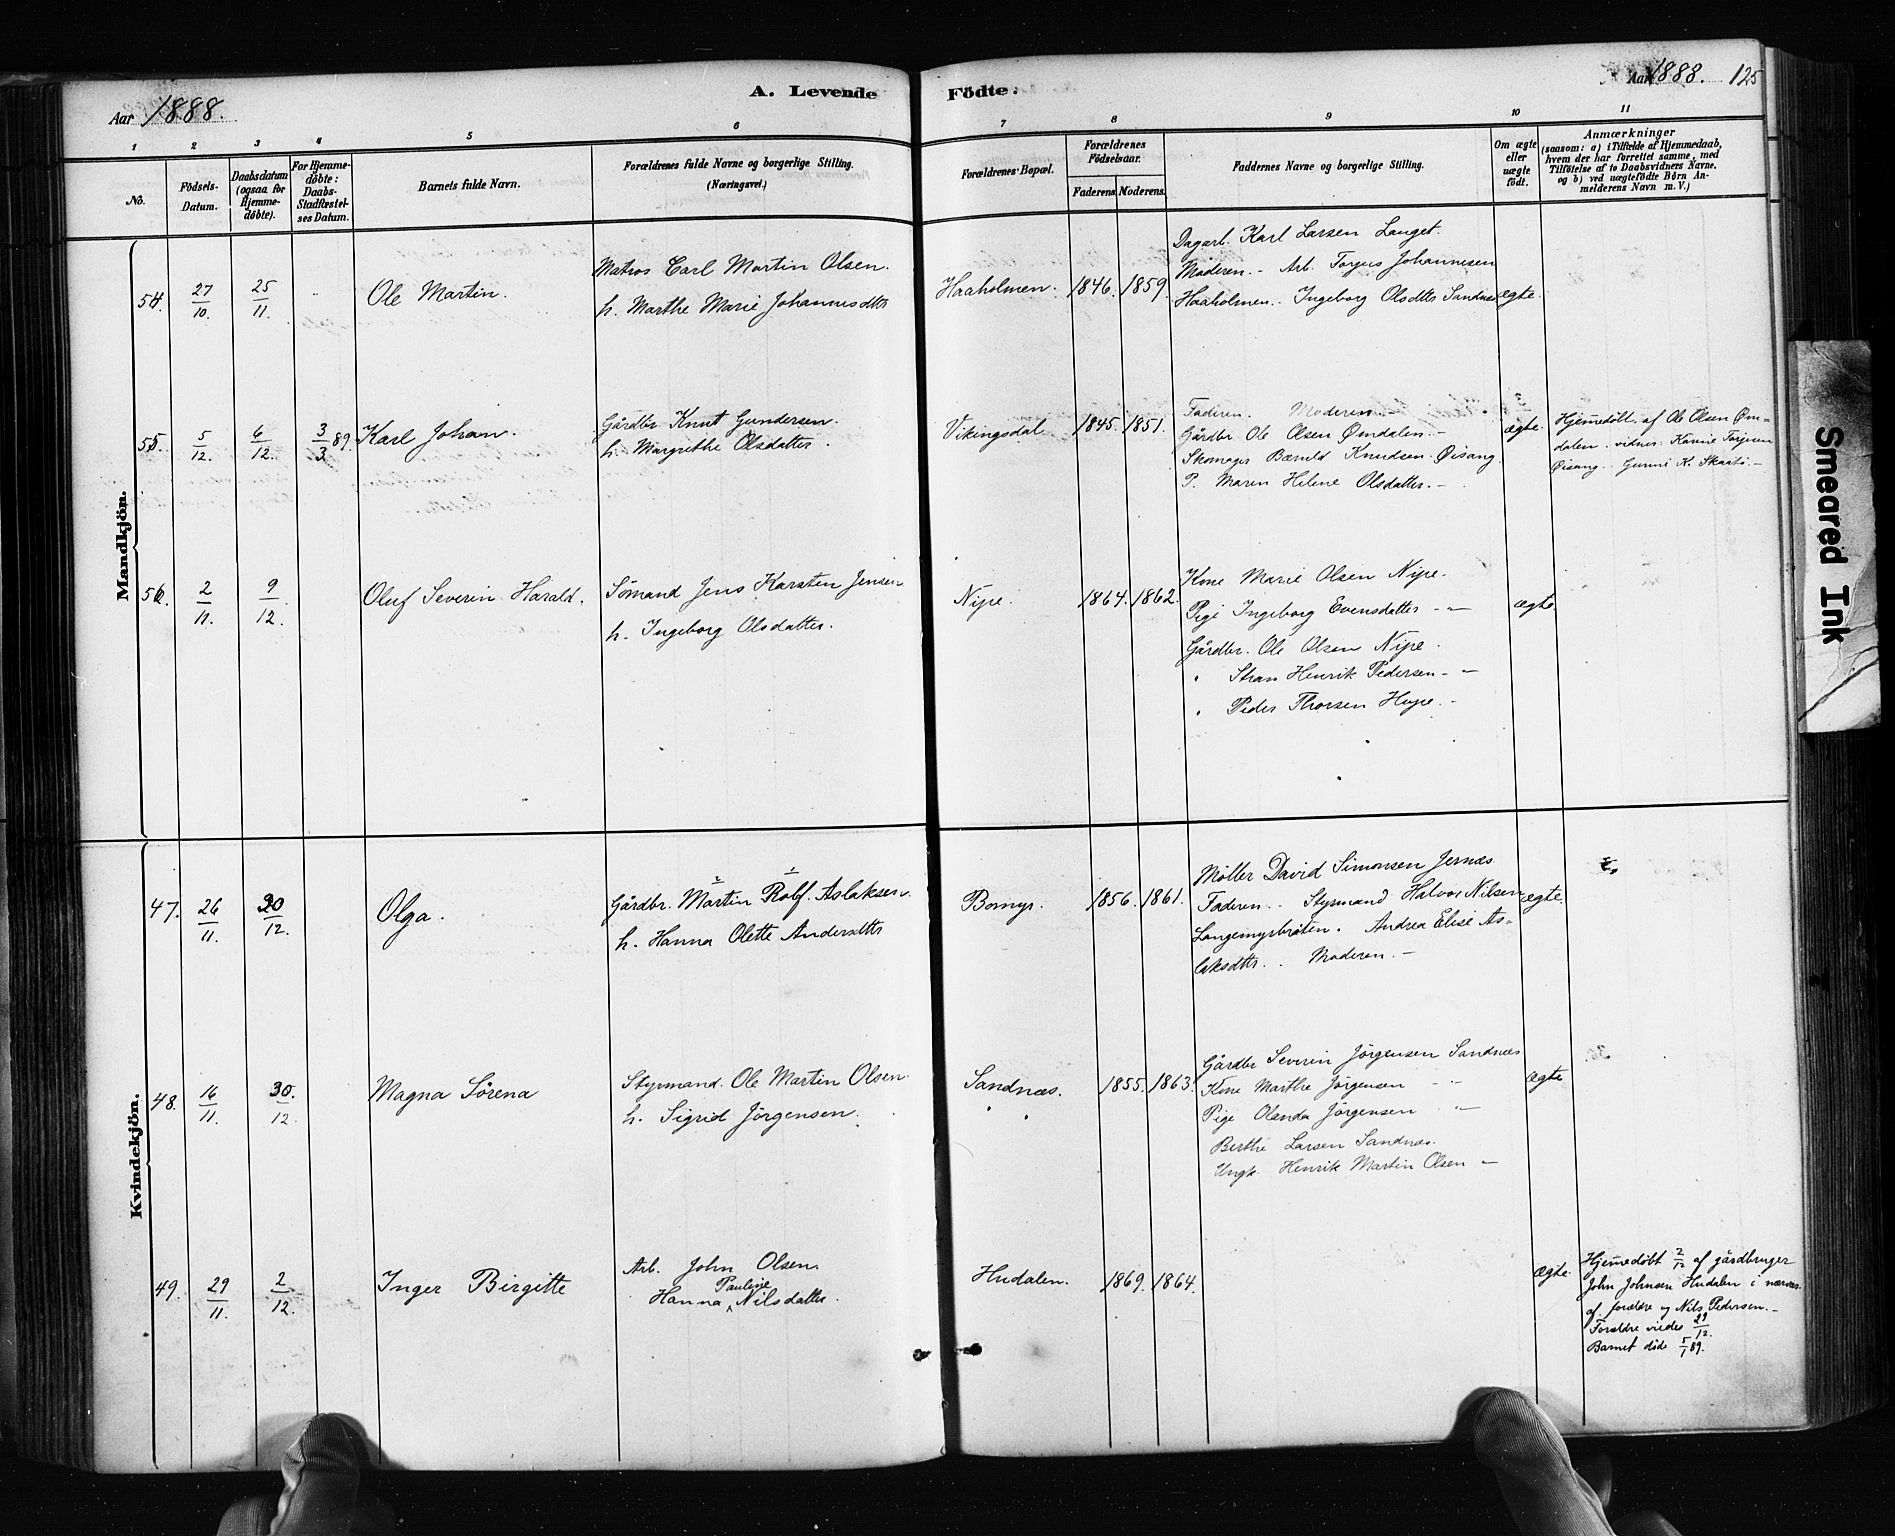 Aar 1888.
A. Levende
Födte.
Aar 1888. 125
1 2 3 4 5 6 7 8 9 10 11
No.
Födsels-
Datum.
Daabsdatum
(ogsaa for
Hjemme-
döbte).
For Hjemme-
döbte:
Daabs-
Stadfæstel-
ses Datum.
Barnets fulde Navn.
Forældrenes fulde Navne og borgerlige Stilling.
(Næringsvei.)
Forældrenes Bopæl.
Forældrenes
Födselsaar.
Faderens. Moderens.
Faddernes Navne og borgerlige Stilling.
Om ægte
eller
uægte
födt.
Anmærkninger
(saasom: a) i Tilfælde af Hjemmedaab,
hvem der har forrettet samme, med
Tilföielse af to Daabsvidners Navne.
og b) ved uægtefödte Börn An-
melderens Navn m. V.)
Mandkjön.
54. 27/10. 25/11. Ole Martin.
Matros Carl Martin Olsen.
h. Marthe Marie Johannesdtter
Haaholmen. 1846. 1859.
Dagarb. Karl Larsen Langet.
Moderen. - Arb. Torjus Johannesen
Haaholmen. - Ingeborg Olsdtter Sandnæs
ægte.
55. 5/12. 6/12. 3/3 89. Karl Johan.
Gårdbr. Knut Gundersen.
h. Margrethe Olsdatter.
Vikingsdal. 1845. 1851.
Faderen. Moderen. -
Gårdbr. Ole Olsen Ømdalen. -
Skomager Bæruld Knudsen Øisang.
P. Maren Helene Olsdatter. -
ægte.
Hjemedöbt. af Ole Olsen Øm-
dalen. vidner. Karine Torjusen
Øisang. Gunni K. Skaatö. -
56. 2/11. 9/12. Oluf Severin Harald.
Sömand Jens Karsten Jensen
h. Ingeborg Olsdatter.
Nipe. 1864. 1862.
Kone Marie Olsen Nipe.
Pige Ingeborg Evensdatter - "-
Gårdbr. Ole Olsen Nipe.
" Stran Henrik Pedersen - "-
" Peder Thorsen Hope. -
ægte.
Kvindekjön.
47. 26/11. 30/12. Olga.
Gårdbr. Martin Rolf. Aslaksen.
h. Hanna Olette Andersdtter
Bomyr. 1856. 1861.
Møller David Simonsen Jernæs
Faderen. - Styrmand Halvor Nilsen
Langemyrbråten. Andrea Elise As-
laksdtter. . Moderen. -
ægte.
48. 16/11. 30./12. Magna Sörena
Styrmand. Ole Martin Olsen.
h. Sigrid Jörgensen.
Sandnæs. 1855. 1863.
Gårdbr Severin Jörgensen Sandnæs
Kone Marthe Jörgensen - "-
Pige Olanda Jörgensen "-
Berthe Larsen Sandnæs.
Ungk. Henrik Martin Olsen -
ægte
49. 29/11. 2/12. Inger Birgitte
Arb. John Olsen.
Pauline
Hanna Nilsdatter.
Hudalen. 1869. 1864.
ægte.
Hjemedöbt 2/12 af gårdbruger
John Johnsen Hudalen i nærvær.
af forældre og Nils Pedersen. -
Forældre viedes 29/12.
Barnet døde 5/1 89.
Smeared Ink